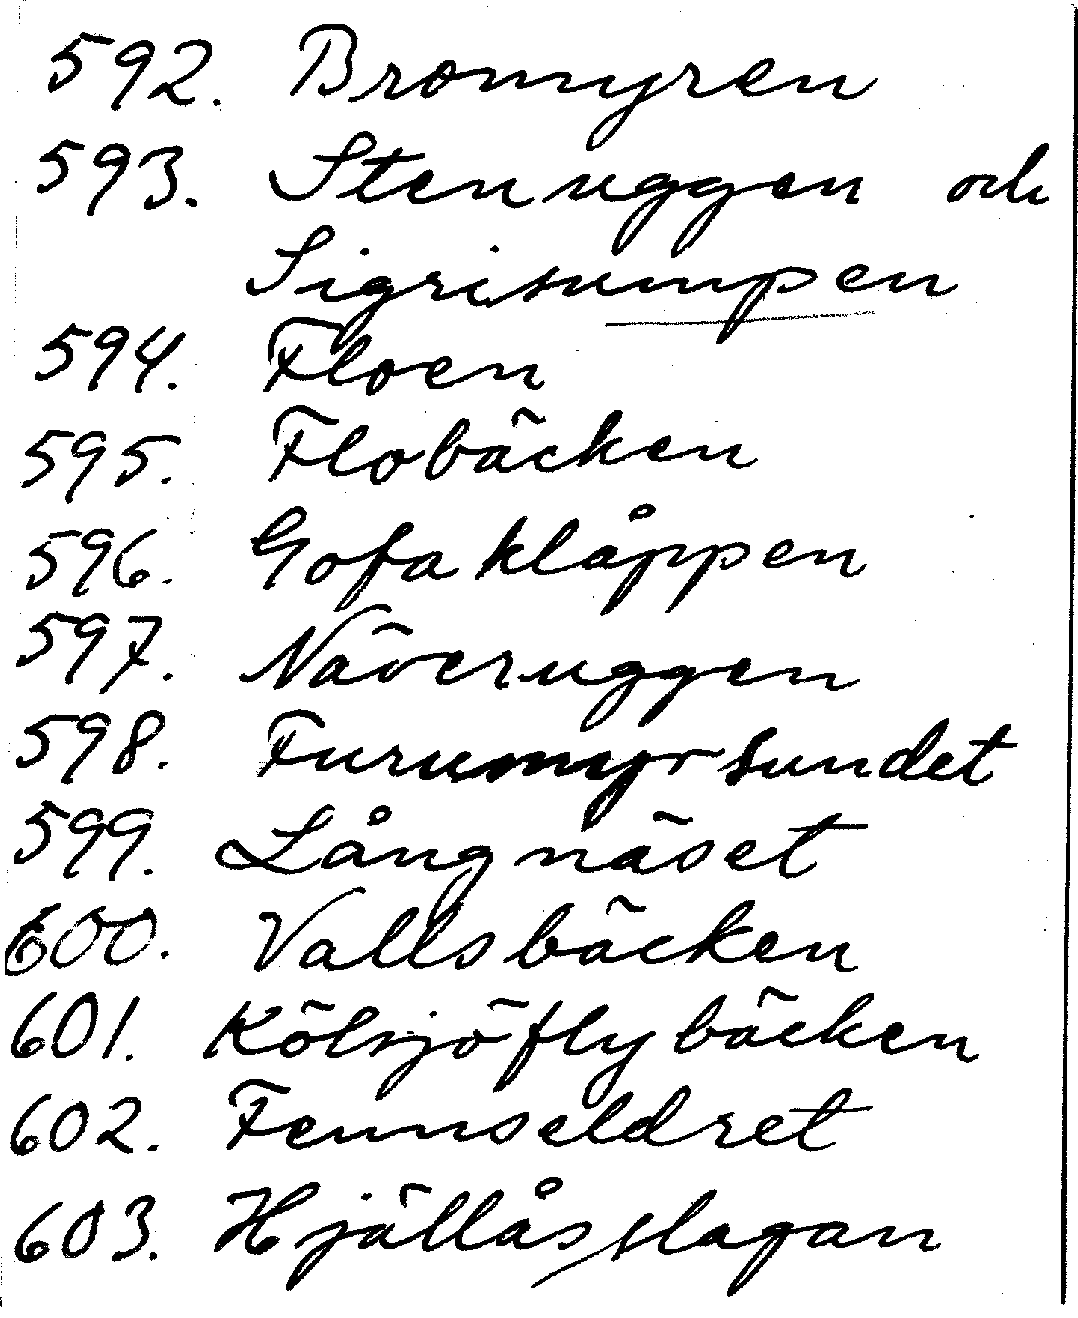 592. Bromyren
593. Stenuggen och
Sigrisumpen
594. Floen
595. Flobäcken
596. Gofaklåppen
597. Näveruggen
598. Furumyrsundet
599. Långnäset
600. Vallsbäcken
601. Kölsjöflybäcken
602. Fennseldret
603. Hjällåsslagan